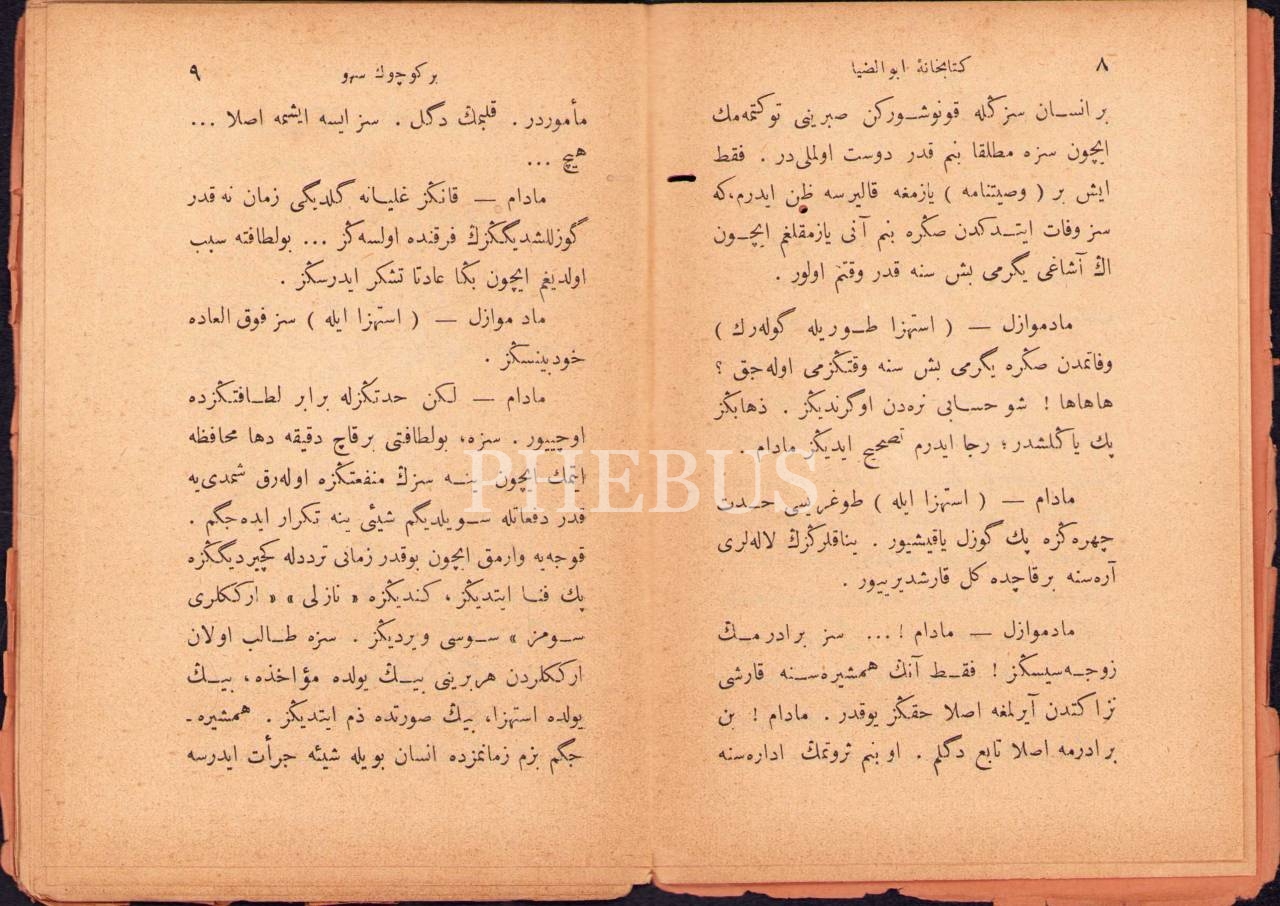 ٨
كتابخانهٔ ابوالضيا
بر انسان سزڭله قونوشوركن صبرينی توكتمه‌مك
ايچون سزه مطلقا بنم قدر دوست اولملی‌در . فقط
ايش بر ( وصيتنامه ) يازمغه قاليرسه ظن ايدرم،كه
سز وفات ايتدكدن صڭره بنم آنی يازمقلغم ايچون
اڭ آشاغی يگرمی بش سنه قدر وقتم اولور .
مادموازل — ( استهزا طوريله گوله‌رك )
وفاتمدن صڭره يگرمی بش سنه وقتڭزمی اوله‌جق ؟
هاهاها ! شو حسابی نره‌دن اوگرنديڭز . ذهابڭز
پك ياڭلشدر؛ رجا ايدرم تصحيح ايديڭز مادام .
مادام — ( استهزا ايله ) طوغريسی حدت
چهره‌ڭزه پك گوزل ياقيشيور . يناقلرڭزڭ لاله‌لری
آره‌سنه برقاچده كل قارشديرييور .
مادموازل — مادام !... سز برادرمڭ
زوجه‌سيسڭز ! فقط آنڭ همشيره‌سنه قارشی
نزاكتدن آيرلمغه اصلا حقڭز يوقدر . مادام ! بن
برادرمه اصلا تابع دگلم . او بنم ثروتمڭ اداره‌سنه
بر كوچوك سهو
٩
مأموردر . قلبمڭ دگل . سز ايسه ايشمه اصلا ...
هيچ ...
مادام — قانڭز غليانه گلديگی زمان نه قدر
گوزللشديگڭزڭ فرقنده اولسه‌ڭز ... بولطافته سبب
اولديغم ايچون بڭا عادتا تشكر ايدرسڭز .
مادموازل — ( استهزا ايله ) سز فوق العاده
خودبينسڭز .
مادام — لكن حدتڭزله برابر لطافتڭزده
اوچييور . سزه، بولطافتی برقاچ دقيقه دها محافظه
ايتمك ايچون ينه سزڭ منفعتڭزه اوله‌رق شمدی‌يه
قدر دفعاتله سويلديگم شيئی ينه تكرار ايده‌جگم .
قوجه‌يه وارمق ايچون بوقدر زمانی ترددله كچيرديگڭزه
پك فنا ايتديڭز، كنديڭزه « نازلی » « ارككلری
سومز » سوسی ويرديڭز . سزه طالب اولان
ارككلردن هربرينی بيڭ يولده مؤاخذه، بيڭ
يولده استهزا، بيڭ صورتده ذم ايتديڭز . همشيره-
جگم بزم زمانمزده انسان بويله شيئه جرأت ايدرسه
PHEBUS